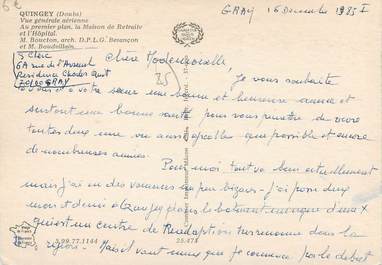 5€
GRAY 16 Décembre 1985
QUINGEY (Doubs)
Vue générale aérienne
Au premier plan, la Maison de Retraite
et l'Hôpital.
M. Boucton, arch. D.P.L.G. Besançon
et M. Baudeillain.
6A rue d'
70100 GRAY
Chère Mademoiselle
(25)
Je vous souhaite
à vous et à votre sœur une bonne et heureuse année et
surtout une bonne santé pour vous permettre de vivre
toutes deux une vie aussi agréable que possible et encore
de nombreuses années.
Pour moi tout va bien actuellement
mais j'ai eu des vacances un peu bizarres - j'ai passé deux
mois et demi à Quingey dans le bâtiment marqué d'une X
qui est un centre de Réadaptation très renommé dans la
région. Mais il vaut mieux que je commence par le début
3.99.77.1144
25.475